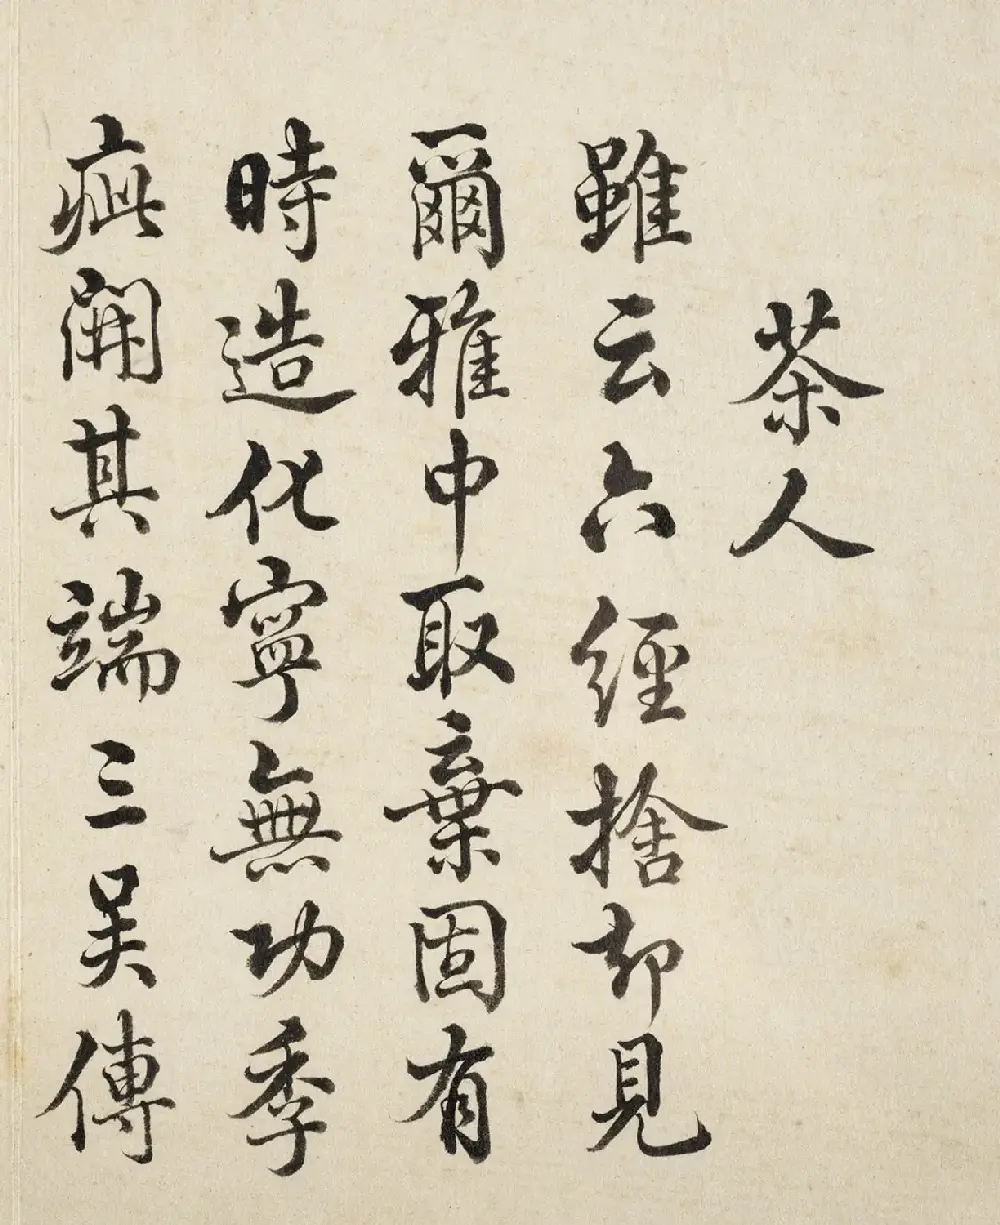 茶人
雖云六經捨却見
爾雅中取棄固有
時造化寧無功季
疵開其端三吴傳